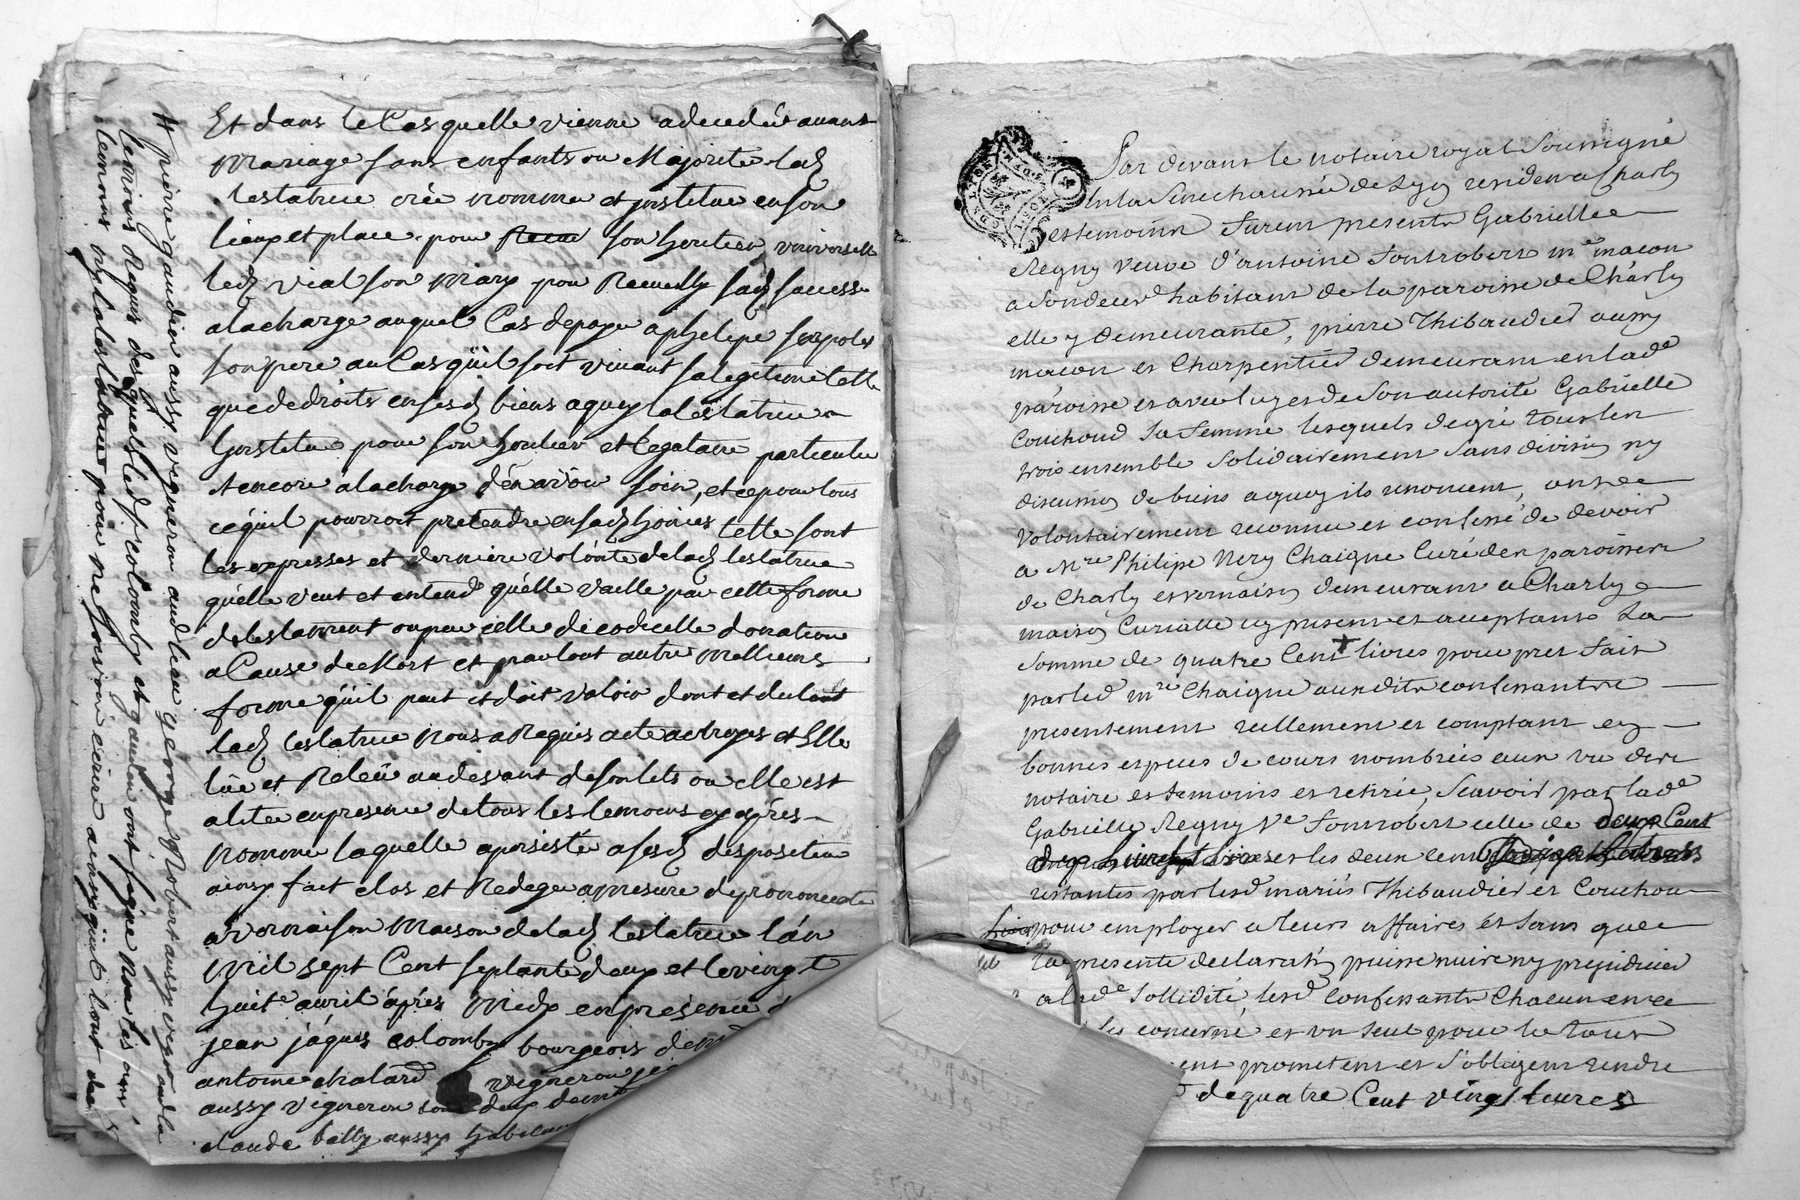 Et dans le Cas quelle vienne a deceder avant
Mariage sans enfants ou Majorite lad
testatrice crée nomme et jnstitue en son
lieu et place pour son heritier universelle
led vial son Mary pour Recueilly sad success
a la charge auquel Cas de paye a phelipe
son pere au Cas quil soit vivant sa legitime telle
que de droits en sesd biens a quoy la testatrice
Ljnstitue pour son heritier et legataire particulie
et encore a la charge d'en avoir soin, et ce pour tous
ce quil pourroit pretendre en sad hoiries telle sont
les expresses et derniere volonte de lad testatrice
quelle veut et entend quelle vaille par cette forme
de testament ou par celle de codicelle donation
a Cause de Mort et par tout autre Mellieure
forme quil peut et doit valoir dont et du tout
lad testatrice Nous a Requis acte actroyes et Elle
lüe et Releüe au devant de son lits ou elle est
alitée en presence de tous les temoins cy apres
Nomme laquelle a persisté a sesd desposition
ainsy fait clos et Redege a mesure de prononcée
a vernaison Maison de lad testatrice l'an
Mil sept Cent septante deux et le vingt
huite avril apres Midy en presence d
jean jaques colomby bourgeois
antoine chalard vigneron
aussy vigneron tous deux
claude bally aussy
pierre gaudin aussy vigneron aud lieu george Robert aussy vigneron la
temoins Requis desquels led s colomby et gaudin ont signe non les
temoins ny la testatrice pour ne savoir ecrire a enquis tout de
Par devant le notaire royal soussigné
en la Senechaussée de Lyon resident a Charly
et temoins furent presents Gabrielle
Regny veuve d'antoine Fontrobert me macon
a Sondeur habitant de la paroisse de Charly
elle y demeurante, pierre Thibaudier aussy
macon et Charpentier demeurant en lade
paroisse et avec luy et de son autorité Gabrielle
Couchoud sa femme lesquels de gré tous les
trois ensemble solidairement sans division ny
discussion de biens a quoy ils renoncent, ont
volontairement reconnu et confessé de devoir
a Mre Philipe Nery Chaigne Curé des paroisses
de Charly et vernaison demeurant a Charly
maison Curialle cy present et acceptant La
somme de quatre Cent livres pour pret fait
par led mre Chaigne auxdits confessants
presentement reellement et comptant en
bonnes especes de cours nombrées aux vu des
notaire et temoins et retirée, Scavoir par lade
Gabrielle Regny Ve Fontrobert celle de deux Cent
et les deux cent
restantes par lesd mariés Thibaudier et Couchou
pour employer a leurs affaires et sans que
la presente declaration puisse nuire ny prejudicier
a lade sollidité, lesd confessants Chacun en ce
les concerne et un seul pour le tout
promettent et s'obligent rendre
de quatre Cent vingt livres